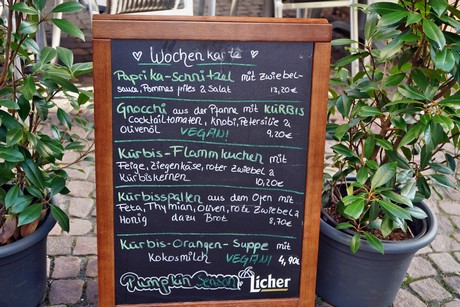 ♥ Wochenkarte ♥
Paprika-schnitzel mit Zwiebel-
sauce, Pommes frites & Salat 13,20 €
Gnocchi aus der Pfanne mit KÜRBIS
Cocktailtomaten, Knobi, Petersilie &
Olivenöl VEGAN! 9,20 €
Kürbis-Flammkuchen mit
Feige, Ziegenkäse, roter Zwiebel &
Kürbiskernen 10,20 €
Kürbisspalten aus dem Ofen mit
Feta, Thymian, Oliven, rote Zwiebel &
Honig dazu Brot 8,70 €
Kürbis-Orangen-Suppe mit
Kokosmilch VEGAN! 4,90 €
Pumpkin Season Licher